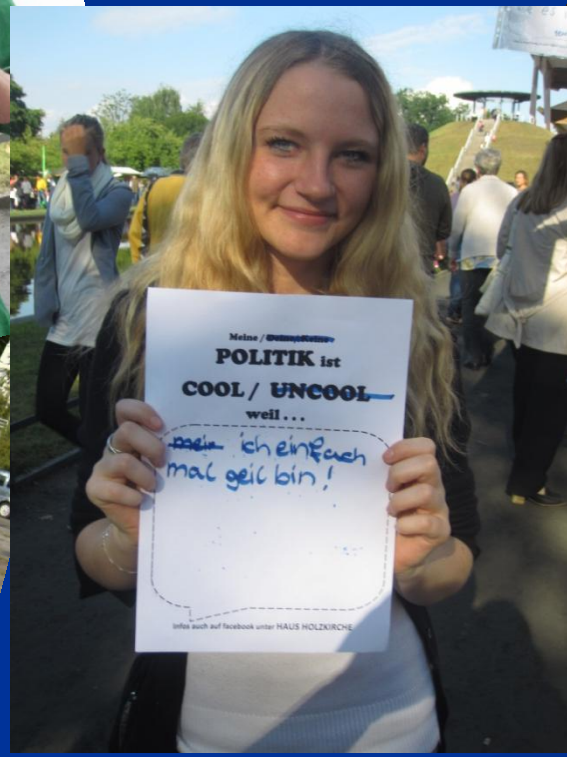 Meine / Deine / Keine
POLITIK ist
COOL / UNCOOL
weil . . .
mein ich einfach
mal geil bin !
Infos auch auf facebook unter HAUS HOLZKIRCHE